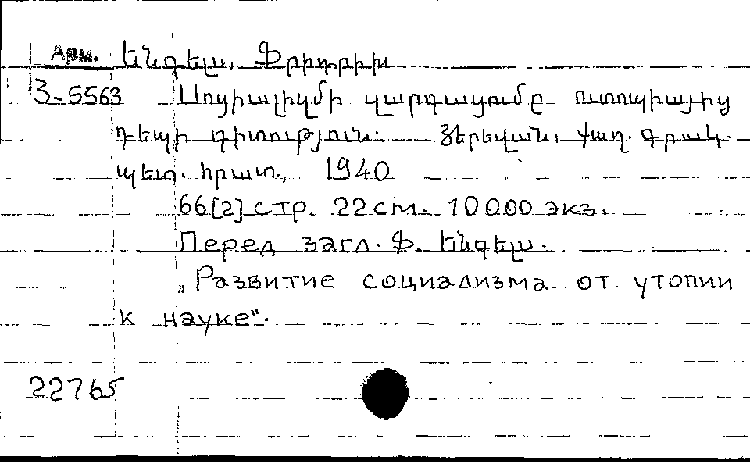 Арм. Ենգելս, Ֆրիդրիխ
З-5563 Սոցիալիզմի զարգացումը ուտոպիայից
դեպի գիտություն. Յերեվան, Քաղ. գրակ.
պետ. հրատ., 1940
66[2] стр. 22 см. 10000 экз.
Перед загл. Ֆ. Ենգելս.
„Развитие социализма от утопии
к науке".
22765